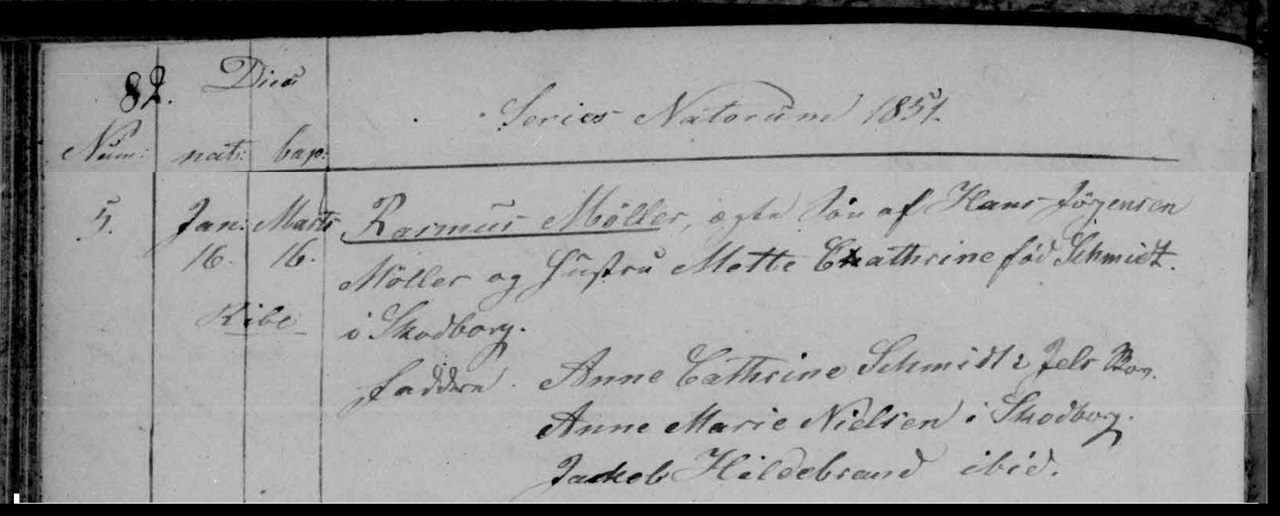 82. Dies
Series Natorum 1851.
Num: nat: bap:
5. Jan: Marts Rasmus Møller, ægte Søn af Hans Jørgensen
16. 16. Møller og Hustru Mette Cathrine fød Schmidt.
Ribe
i Skodborg.
Faddere Anne Cathrine Schmidt i Jels
Anne Marie Nielsen i Skodborg.
Jackob Hildebrand ibid.